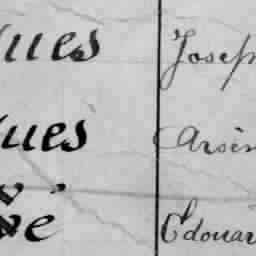 ues Josep
ues Arsèn
é Édouar